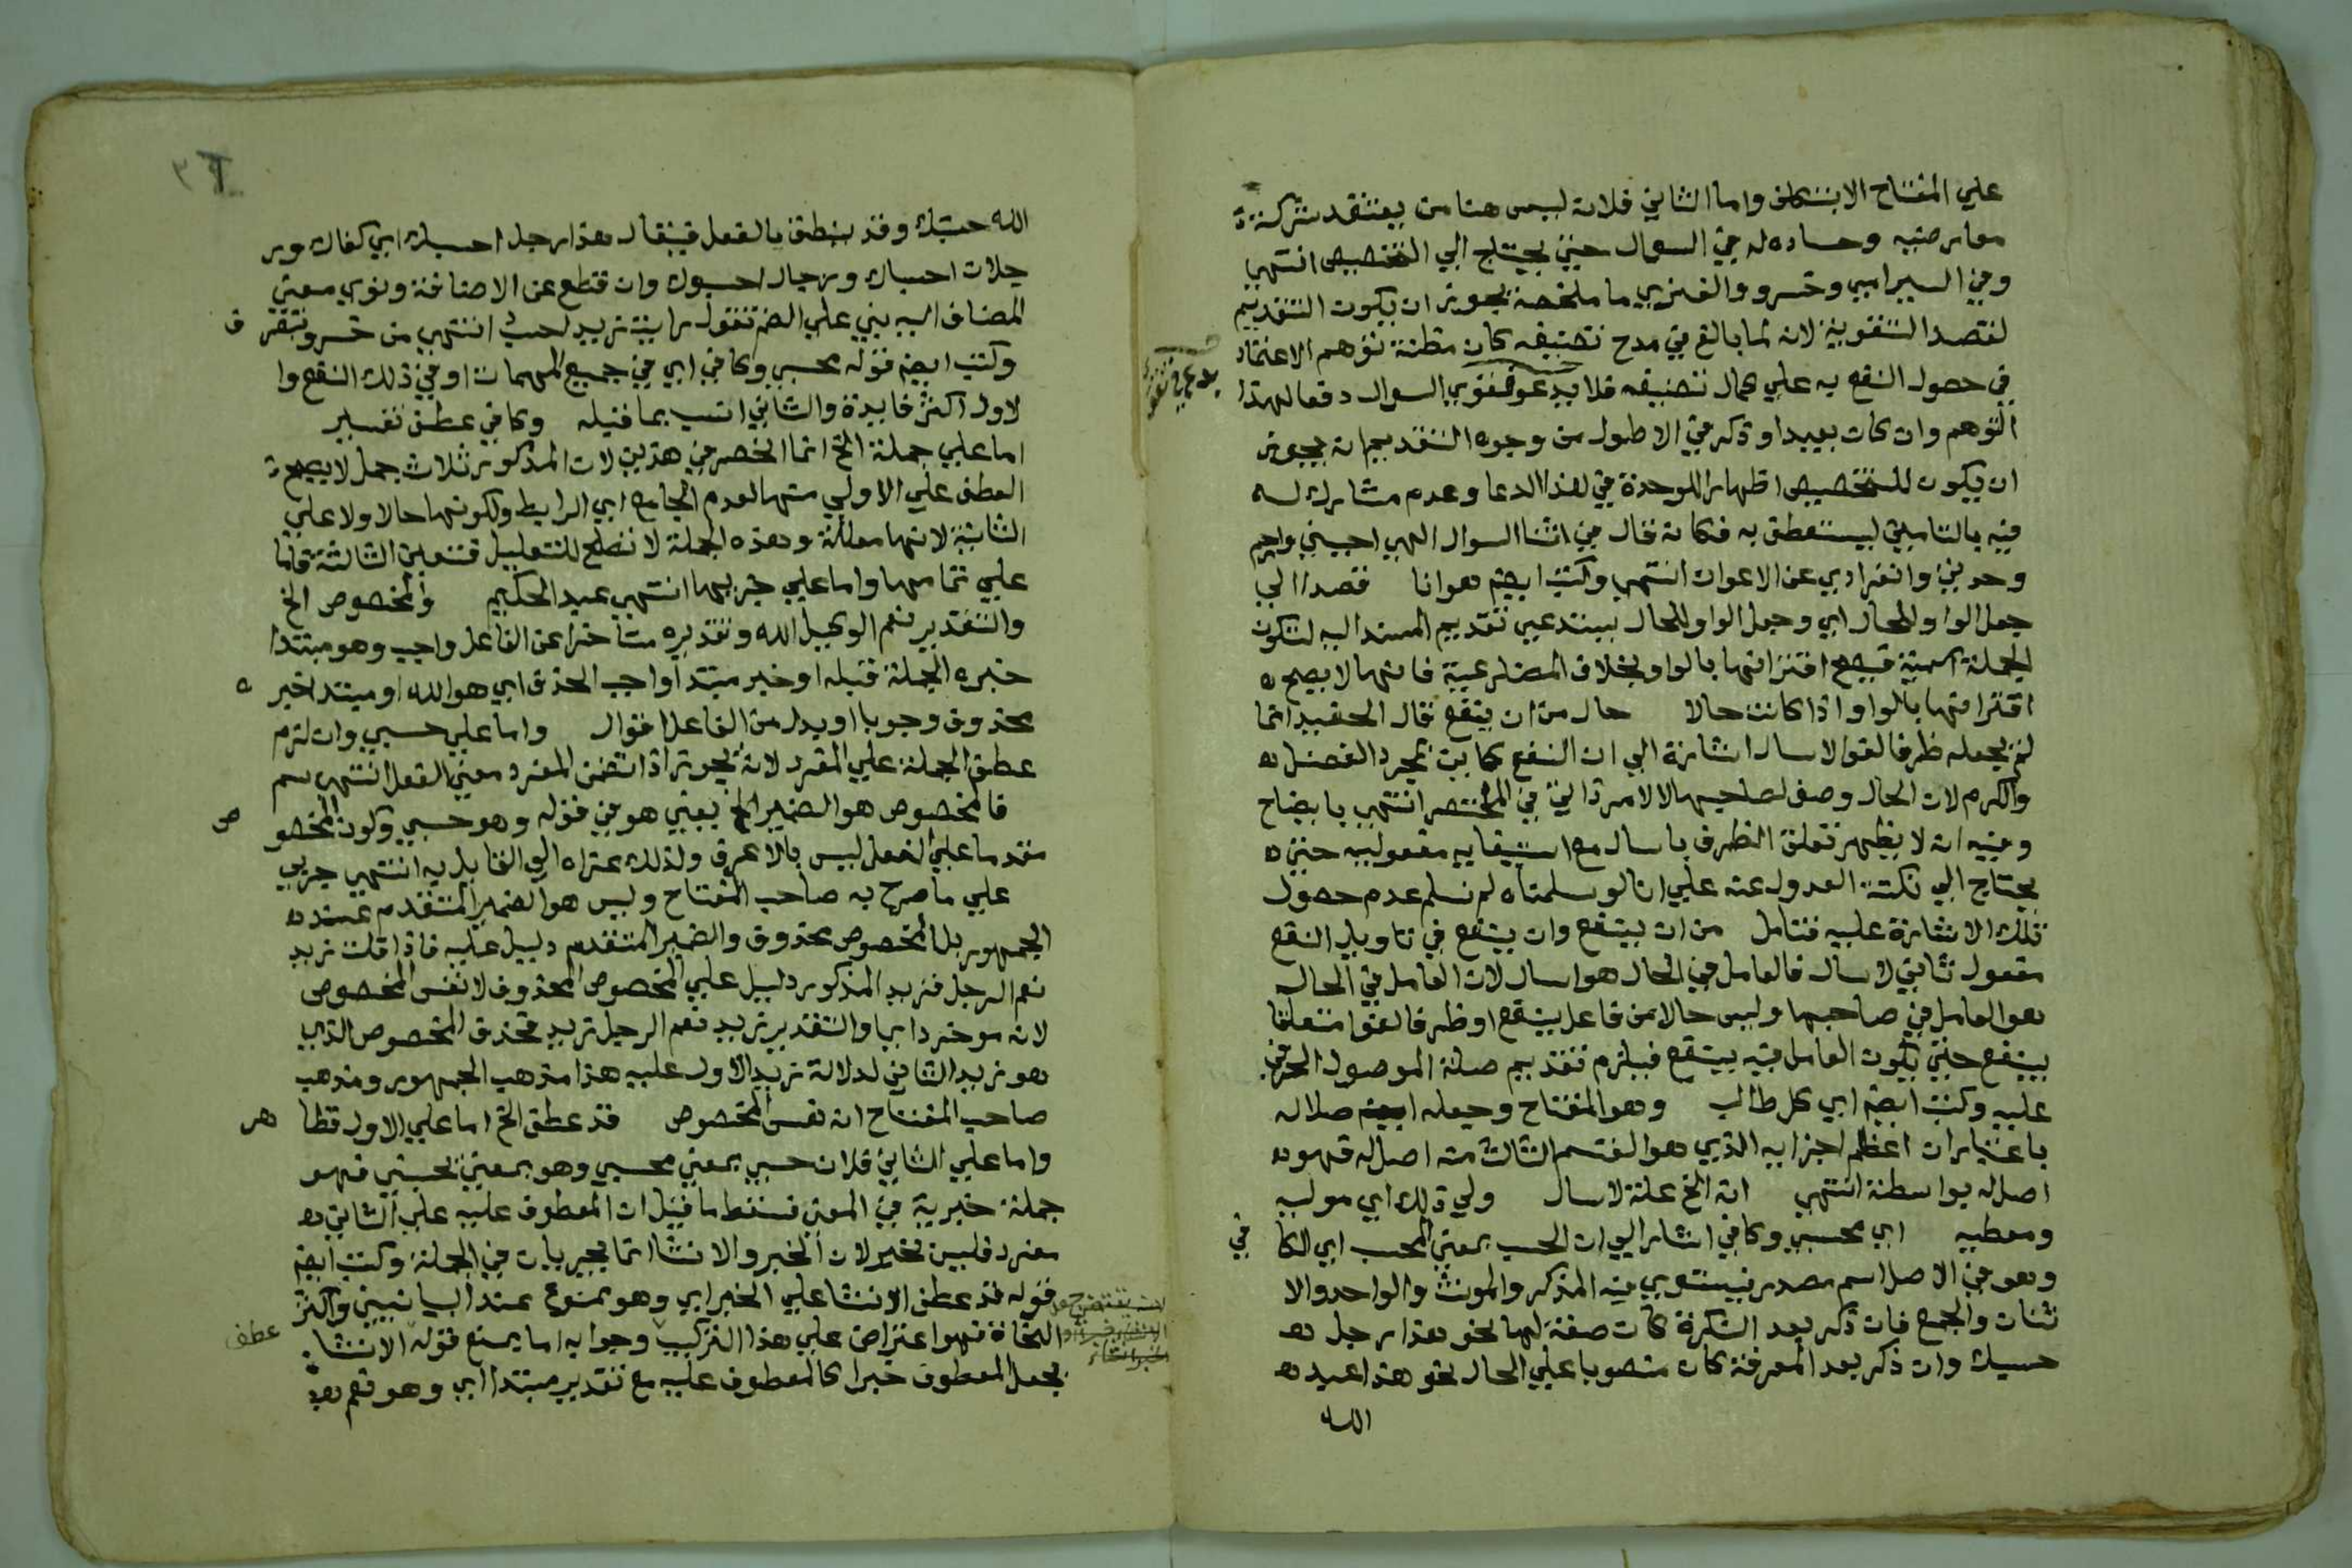 علي المفتاح الا بتكلف واما الثاني فلانه ليس هنا من يعتقد شركة
معارضيه وحساده له في السوال حتي يحتاج الي التخصيص انتهي
وفي السيرامي وخسرو والفنري ما ملخصه يجوز ان يكون التقديم
لقصد التقوية لانه لما بالغ في مدح تصنيفه كان مظنة توهم الاعتماد
في حصول النفع به علي كمال تصنيفه فلا يدعو فقوي السوال دفعا لهذا
التوهم وان كان بعيدا وذكر في الاطول من وجوه التقديم انه يجوز
ان يكون للتخصيص اظهارا للوحدة في هذا الدعا وعدم مشارك له
فيه بالتامين ليستعطف به فكانه قال في اثنا السوال الهي احبيني وارحم
وحدتي وانفرادي عن الاعوان انتهي وكتب ايضم هوانا قصدا الي
جعل الواو للحال اي وجعل الواو للحال يستدعي تقديم المسند اليه لتكون
الجملة اسمية فيصح اقترانها بالواو بخلاف المضارعية فانها لا يصح
اقترانها بالواو اذا كانت حالا حال من ان ينفع قال الحفيد انما
لم يجعله ظرفا لغوا لاسال اشارة الي ان النفع كاين بمجرد الفضل
والكرم لان الحال وصف لصاحبها لا لامر ذاتي في المختصر انتهي بايضاح
وفيه انه لا يظهر تعلق الظرف باسال مع استيفايه مفعوليه حتي
يحتاج الي نكتة العدول عنه علي انا لو سلمناه لم نسلم عدم حصول
تلك الاشارة عليه فتامل من ان ينتفع وان ينتفع في تاويل النفع
مفعول ثاني لاسال فالعامل في الحال هو اسال لان العامل في الحال
هو العامل في صاحبها وليس حالا من فاعل ينتفع او ظرفا لغوا متعلقا
بينتفع حتي يكون العامل فيه ينتفع فيلزم تقديم صلة الموصول الحرفي
عليه وكتب ايضم اي كل طالب وهو المفتاح وجعله ايضم صلاله
باعتبار ان اعظم اجزايه الذي هو القسم الثالث منه اصل له فهو
اصل له بواسطة انتهي انه الخ علة لاسال ولي ذلك اي موليه
ومعطيه اي محسبي وكافي اشار الي ان الحسب بمعني المحسب اي الكا
في
وهو في الاصل اسم مصدر فيستوي فيه المذكر والمونث والواحد والا
ثنان والجمع فان ذكر بعد النكرة كان صفة لها نحو هذا رجل
حسبك وان ذكر بعد المعرفة كان منصوبا علي الحال نحو هذا عبد
الله
الله حسبك وقد ينطق بالفعل فيقال هذا رجل احسبك اي كفاك ور
جلان احسباك ورجال احسبوك وان قطع عن الاضافة ونوي معني
المضاف اليه بني علي الضم تقول رايت زيد لحسب انتهي من خسرو بتصر ف
وكتب ايضم قوله محسبي وكافي اي في جميع المهمات او في ذلك النفع وا
لاول اكثر فايدة والثاني انسب بما قبله وكافي عطف تفسير
اما علي جملة الخ انما انحصر في هذين لان المذكور ثلاث جمل لا يصح
العطف علي الاولي منها لعدم الجامع اي الرابط ولكونها حالا ولا علي
الثانية لانها معللة وهذه الجملة لا تصلح للتعليل فتعين الثالثة فاما
علي تمامها واما علي جزيها انتهي عبد الحكيم والمخصوص الخ
والتقدير نعم الوكيل الله وتقديره متاخرا عن الفاعل واجب وهو مبتدا
خبره الجملة قبله او خبر مبتدا واجب الحذف اي هو الله او مبتدا خبر ه
محذوف وجوبا او بدل من الفاعل اقوال واما علي حسبي وان لزم
عطف الجملة علي المفرد لانه يجوز اذا تضمن المفرد معني الفعل انتهي سم
فالمخصوص هو الضمير الخ يعني هو في قوله وهو حسبي وكون المخصو ص
مقدما علي الفعل ليس بالاعرق ولذلك عزاه الي القايل به انتهي جربي
علي ما صرح به صاحب المفتاح وليس هو الضمير المتقدم عند
الجمهور بل المخصوص محذوف والضمير المتقدم دليل عليه فاذا قلت زيد
نعم الرجل فزيد المذكور دليل علي المخصوص المحذوف لا نفس المخصوص
لانه موخر داي والتقدير زيد نعم الرجل زيد فحذف المخصوص الذي
هو زيد الثاني لدلالة زيد الاول عليه هذا مذهب الجمهور ومذهب
صاحب المفتاح انه نفس المخصوص قد عطف الخ اما علي الاول فظا هر
واما علي الثاني فلان حسبي بمعني محسبي وهو بمعني يحسبني فهو
جملة خبرية في المعني فسقط ما قيل ان المعطوف عليه علي الثاني
مفرد فليس بخبر لان الخبر والانشا انما يجريان في الجملة وكتب ايضم
قوله قد عطف الانشا علي الخبر اي وهو ممنوع عند البيانيين واكثر
النحاة فهو اعتراض علي هذا التركيب وجوابه اما بمنع قوله الانشا عطف
بجعل المعطوف خبرا كالمعطوف عليه مع تقدير مبتدا اي وهو نعم